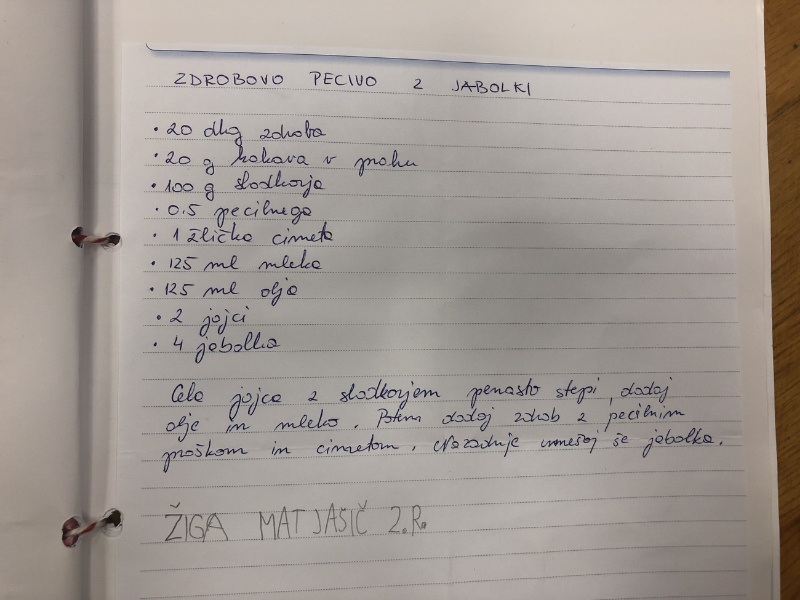 ZDROBOVO PECIVO Z JABOLKI
• 20 dkg zdroba
• 20 g kakava v prahu
• 100 g sladkorja
• 0.5 pecilnega
• 1 žlička cimeta
• 125 ml mleka
• 125 ml olja
• 2 jajci
• 4 jabolka
Cela jajca z sladkorjem penasto stepi, dodaj
olje in mleko. Potem dodaj zdrob z pecilnim
praškom in cimetom. Nazadnje umešaj še jabolka.
ŽIGA MATJAŠIČ 2.R.